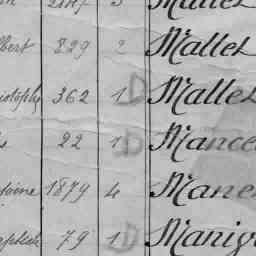 Mallet
bert 829 2 Mallet
istophe 362 1 D Mallet
22 1 D Mance
toine 1879 4 Mane
aptiste 79 1 D Manig